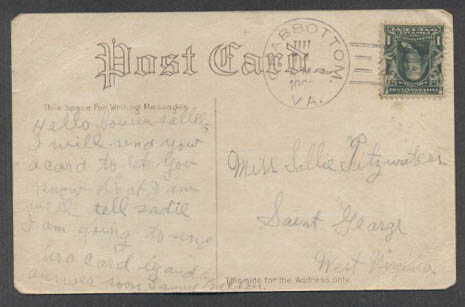 Post Card.
CRABBOTTOM.
VA.
This Space For Writing Messages
Hello Cousin Sallie,
I will send you
a card to let you
know that I am
well tell Sadie
I am going to send
her a card by and by
answer soon
Miss Sallie Fitzwater
Saint George
West Virginia
This side for the Address only.